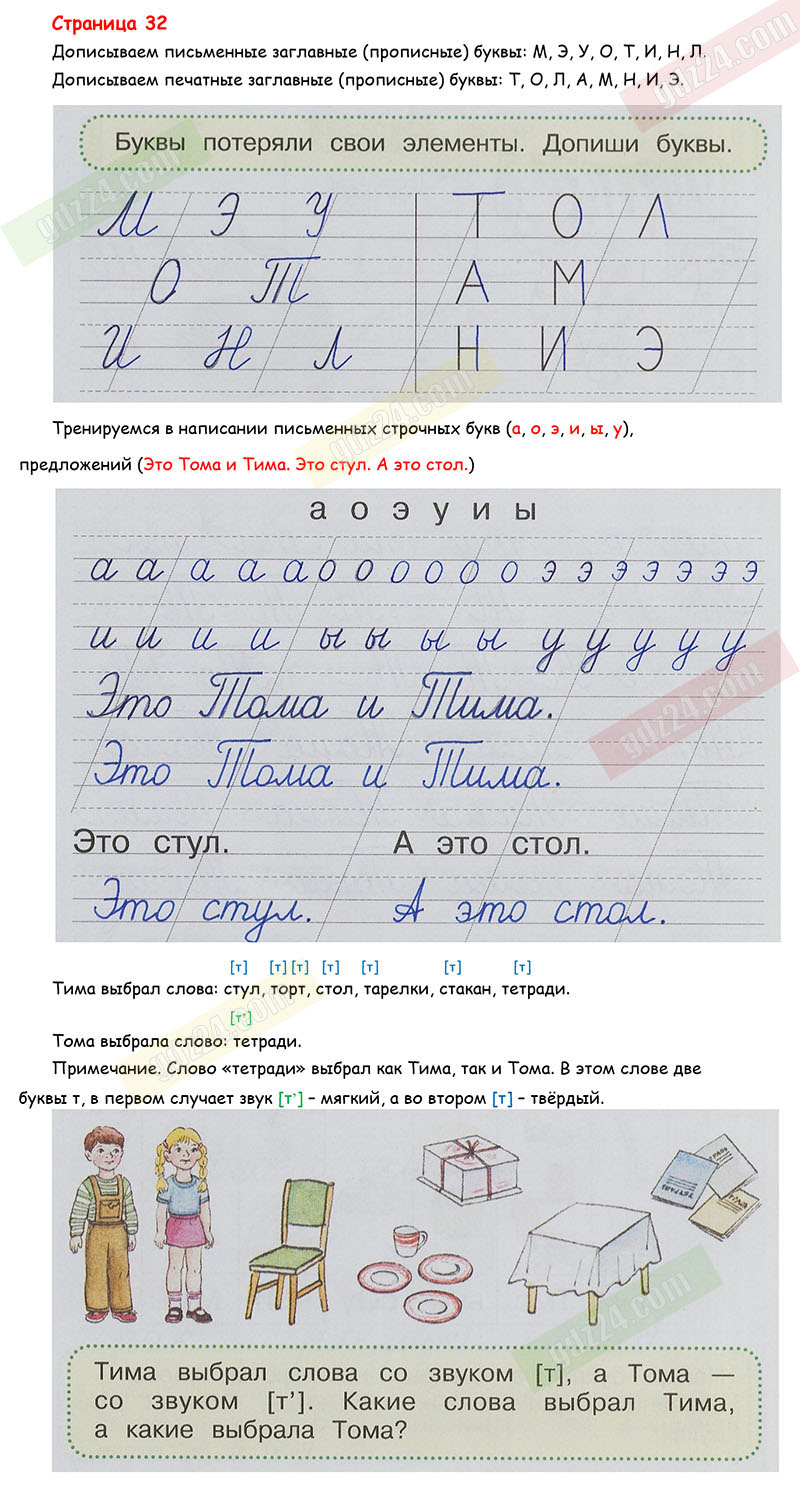 Страница 32
Дописываем письменные заглавные (прописные) буквы: М, Э, У, О, Т, И, Н, Л.
Дописываем печатные заглавные (прописные) буквы: Т, О, Л, А, М, Н, И, Э.
Буквы потеряли свои элементы. Допиши буквы.
М Э У Т О Л
О Т А М
И Н Л Н И Э
Тренируемся в написании письменных строчных букв (а, о, э, и, ы, у),
предложений (Это Тома и Тима. Это стул. А это стол.)
а о э у и ы
а а а а а о о о о о о э э э э э э э
и и и и ы ы ы ы у у у у у
Это Тома и Тима.
Это Тома и Тима.
Это стул. А это стол.
Это стул. А это стол.
[т] [т] [т] [т] [т] [т] [т]
Тима выбрал слова: стул, торт, стол, тарелки, стакан, тетради.
[т']
Тома выбрала слово: тетради.
Примечание. Слово «тетради» выбрал как Тима, так и Тома. В этом слове две
буквы т, в первом случает звук [т'] – мягкий, а во втором [т] – твёрдый.
Тима выбрал слова со звуком [т], а Тома —
со звуком [т']. Какие слова выбрал Тима,
а какие выбрала Тома?
gdz24.com
gdz24.com
gdz24.com
gdz24.com
gdz24.com
gdz24.com